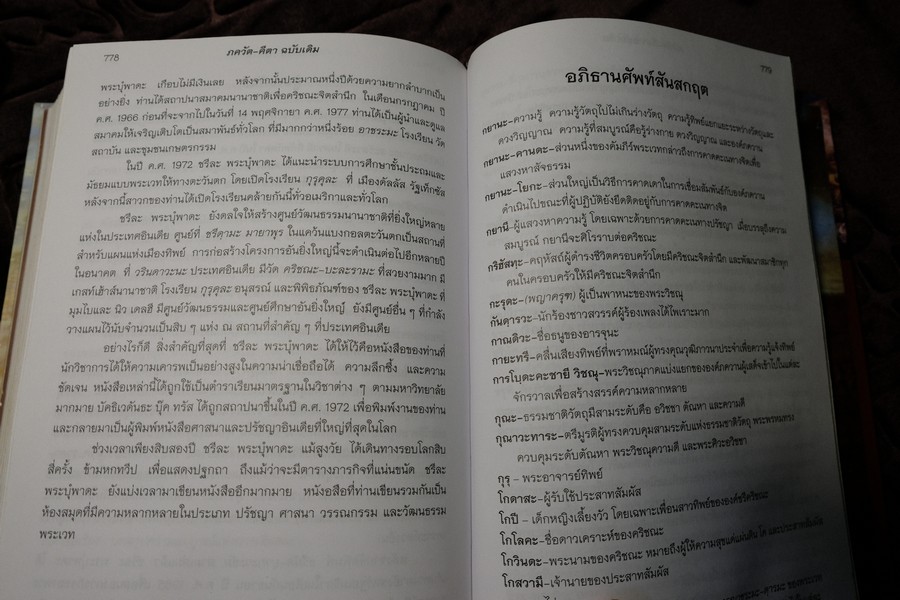 778
ภควัต-คีตา ฉบับเดิม
พระบุ้พาดะ เกือบไม่มีเงินเลย หลังจากนั้นประมาณหนึ่งปีด้วยความยากลำบากเป็น
อย่างยิ่ง ท่านได้สถาปนาสมาคมนานาชาติเพื่อคริชณะจิตสำนึก ในเดือนกรกฎาคม ปี
ค.ศ. 1966 ก่อนที่จะจากไปในวันที่ 14 พฤศจิกายา ค.ศ. 1977 ท่านได้เป็นผู้นำและดูแล
สมาคมให้เจริญเติบโตเป็นสมาพันธ์ทั่วโลก ที่มีมากกว่าหนึ่งร้อย อาชระมะ โรงเรียน วัด
สถาบัน และชุมชนเกษตรกรรม
ในปี ค.ศ. 1972 ชรีละ พระบุ้พาดะ ได้แนะนำระบบการศึกษาชั้นประถมและ
มัธยมแบบพระเวทให้ทางตะวันตก โดยเปิดโรงเรียน กุรุคุละ ที่ เมืองดัลลัส รัฐเท็กซัส
หลังจากนี้สาวกของท่านได้เปิดโรงเรียนคล้ายกันนี้ทั่วอเมริกาและทั่วโลก
ชรีละ พระบุ้พาดะ ยังดลใจให้สร้างศูนย์วัฒนธรรมนานาชาติที่ยิ่งใหญ่หลาย
แห่งในประเทศอินเดีย ศูนย์ที่ ชรีดามะ มายาพุร ในแคว้นแบงกอลตะวันตกเป็นสถานที่
สำหรับแผนแห่งเมืองทิพย์ การก่อสร้างโครงการอันยิ่งใหญ่นี้จะดำเนินต่อไปอีกหลายปี
ในอนาคต ที่ วรินดาวะนะ ประเทศอินเดีย มีวัด คริชณะ-บะละรามะ ที่สวยงามมาก มี
เกสท์เฮ้าส์นานาชาติ โรงเรียน กุรุคุละ อนุสรณ์ และพิพิธภัณฑ์ของ ชรีละ พระบุ้พาดะ ที่
มุมไบและ นิว เดลฮี มีศูนย์วัฒนธรรมและศูนย์ศึกษาอันยิ่งใหญ่ ยังมีศูนย์อื่น ๆ ที่กำลัง
วางแผนไว้นับจำนวนเป็นสิบ ๆ แห่ง ณ สถานที่สำคัญ ๆ ที่ประเทศอินเดีย
อย่างไรก็ดี สิ่งสำคัญที่สุดที่ ชรีละ พระบุ้พาดะ ได้ให้ไว้คือหนังสือของท่านที่
นักวิชาการได้ให้ความเคารพเป็นอย่างสูงในความน่าเชื่อถือได้ ความลึกซึ้ง และความ
ชัดเจน หนังสือเหล่านี้ได้ถูกใช้เป็นตำราเรียนมาตรฐานในวิชาต่าง ๆ ตามมหาวิทยาลัย
มากมาย บัคธิเวดันธะ บุ๊ค ทรัส ได้ถูกสถาปนาขึ้นในปี ค.ศ. 1972 เพื่อพิมพ์งานของท่าน
และกลายมาเป็นผู้พิมพ์หนังสือศาสนาและปรัชญาอินเดียที่ใหญ่ที่สุดในโลก
ช่วงเวลาเพียงสิบสองปี ชรีละ พระบุ้พาดะ แม้สูงวัย ได้เดินทางรอบโลกสิบ
สี่ครั้ง ข้ามหกทวีป เพื่อแสดงปฐกถา ถึงแม้ว่าจะมีตารางภารกิจที่แน่นขนัด ชรีละ
พระบุ้พาดะ ยังแบ่งเวลามาเขียนหนังสืออีกมากมาย หนังอสือที่ท่านเขียนรวมกันเป็น
ห้องสมุดที่มีความหลากหลายในประเภท ปรัชญา ศาสนา วรรณกรรม และวัฒนธรรม
พระเวท
779
อภิธานศัพท์สันสกฤต
กยานะ-ความรู้ ความรู้วัตถุไปไม่เกินร่างวัตถุ ความรู้ทิพย์แยกแยะระหว่างวัตถุและ
ดวงวิญญาณ ความรู้ที่สมบูรณ์คือรู้ร่างกาย ดวงวิญญาณ และองค์ภควาน
กยานะ-คานดะ-ส่วนหนึ่งของคัมภีร์พระเวทกล่าวถึงการคาดคะเนทางจิตเพื่อ
แสวงหาสัจธรรม
กยานะ-โยกะ-ส่วนใหญ่เป็นวิธีการคาดเดาในการเชื่อมสัมพันธ์กับองค์ภควาน
ดำเนินไปขณะที่ผู้ปฏิบัติยังยึดติดอยู่กับการคาดคะเนทางจิต
กยานี-ผู้แสวงหาความรู้ โดยเฉพาะด้วยการคาดคะเนทางปรัชญา เมื่อบรรลุถึงความ
สมบูรณ์ กยานีจะศิโรราบต่อคริชณะ
กริฮัสทฺะ-คฤหัสถ์ผู้ดำรงชีวิตครอบครัวโดยมีคริชณะจิตสำนึก และพัฒนาสมาชิกทุก
คนในครอบครัวให้มีคริชณะจิตสำนึก
กะรุดะ-(พญาครุฑ) ผู้เป็นพาหนะของพระวิชณุ
กันดารวะ-นักร้องชาวสวรรค์ผู้ร้องเพลงได้ไพเราะมาก
กาณดิวะ-ชื่อธนูของอารจุนะ
กายะทรี-คลื่นเสียงทิพย์ที่พราหมณ์ผู้ทรงคุณวุฒิภาวนาประจำเพื่อความรู้แจ้งทิพย์
การโบดะคะชายี วิชณุ-พระวิชณุภาคแบ่งแยกขององค์ภควานผู้เสด็จเข้าไปในแต่ละ
จักรวาลเพื่อสร้างสรรค์ความหลากหลาย
กุณะ-ธรรมชาติวัตถุมีสามระดับคือ อวิชชา ตัณหา และความดี
กุณาวะทาระ-ตรีมูรติผู้ทรงควบคุมสามระดับแห่งธรรมชาติวัตถุ พระพรหมทรง
ควบคุมระดับตัณหา พระวิชณุความดี และพระศิวะอวิชชา
กุรุ – พระอาจารย์ทิพย์
โกดาสะ-ผู้รับใช้ประสาทสัมผัส
โกปี – เด็กหญิงเลี้ยงวัว โดยเฉพาะเพื่อนสาวทิพย์ขององค์ชรีคริชณะ
โกโลคะ-ชื่อดาวเคราะห์ของคริชณะ
โกวินดะ-พระนามของคริชณะ หมายถึงผู้ให้ความสุขแด่แผ่นดิน โค และประสาทสัมผัส
โกสวามี-เจ้านายของประสาทสัมผัส